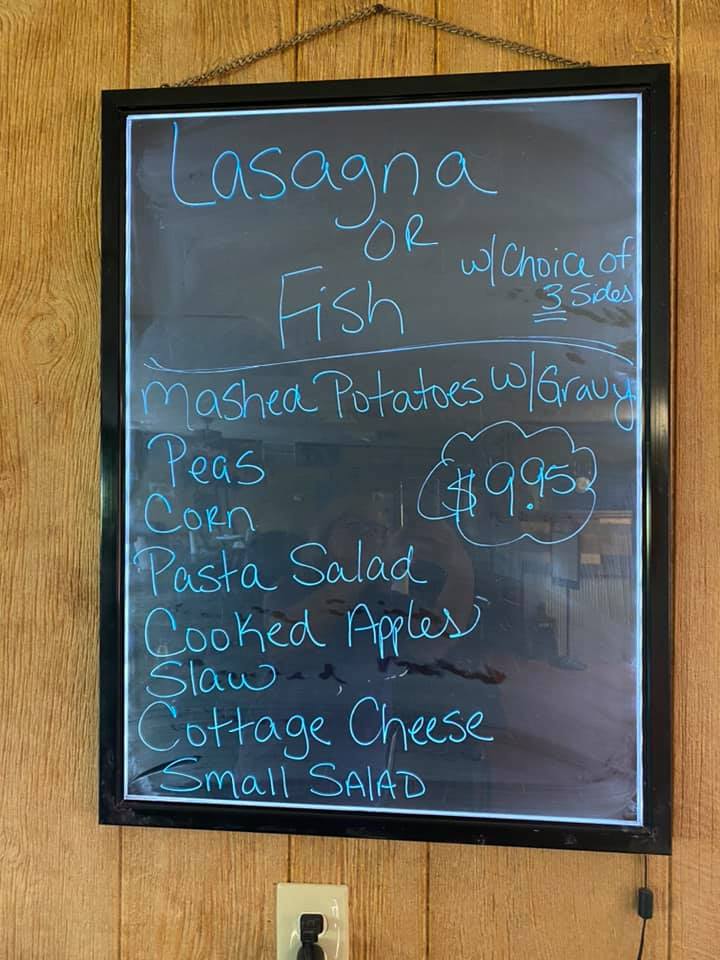 Lasagna
OR
Fish
w/Choice of
3 Sides
Mashed Potatoes w/Gravy
Peas
$9.95
Corn
Pasta Salad
Cooked Apples
Slaw
Cottage Cheese
Small SALAD